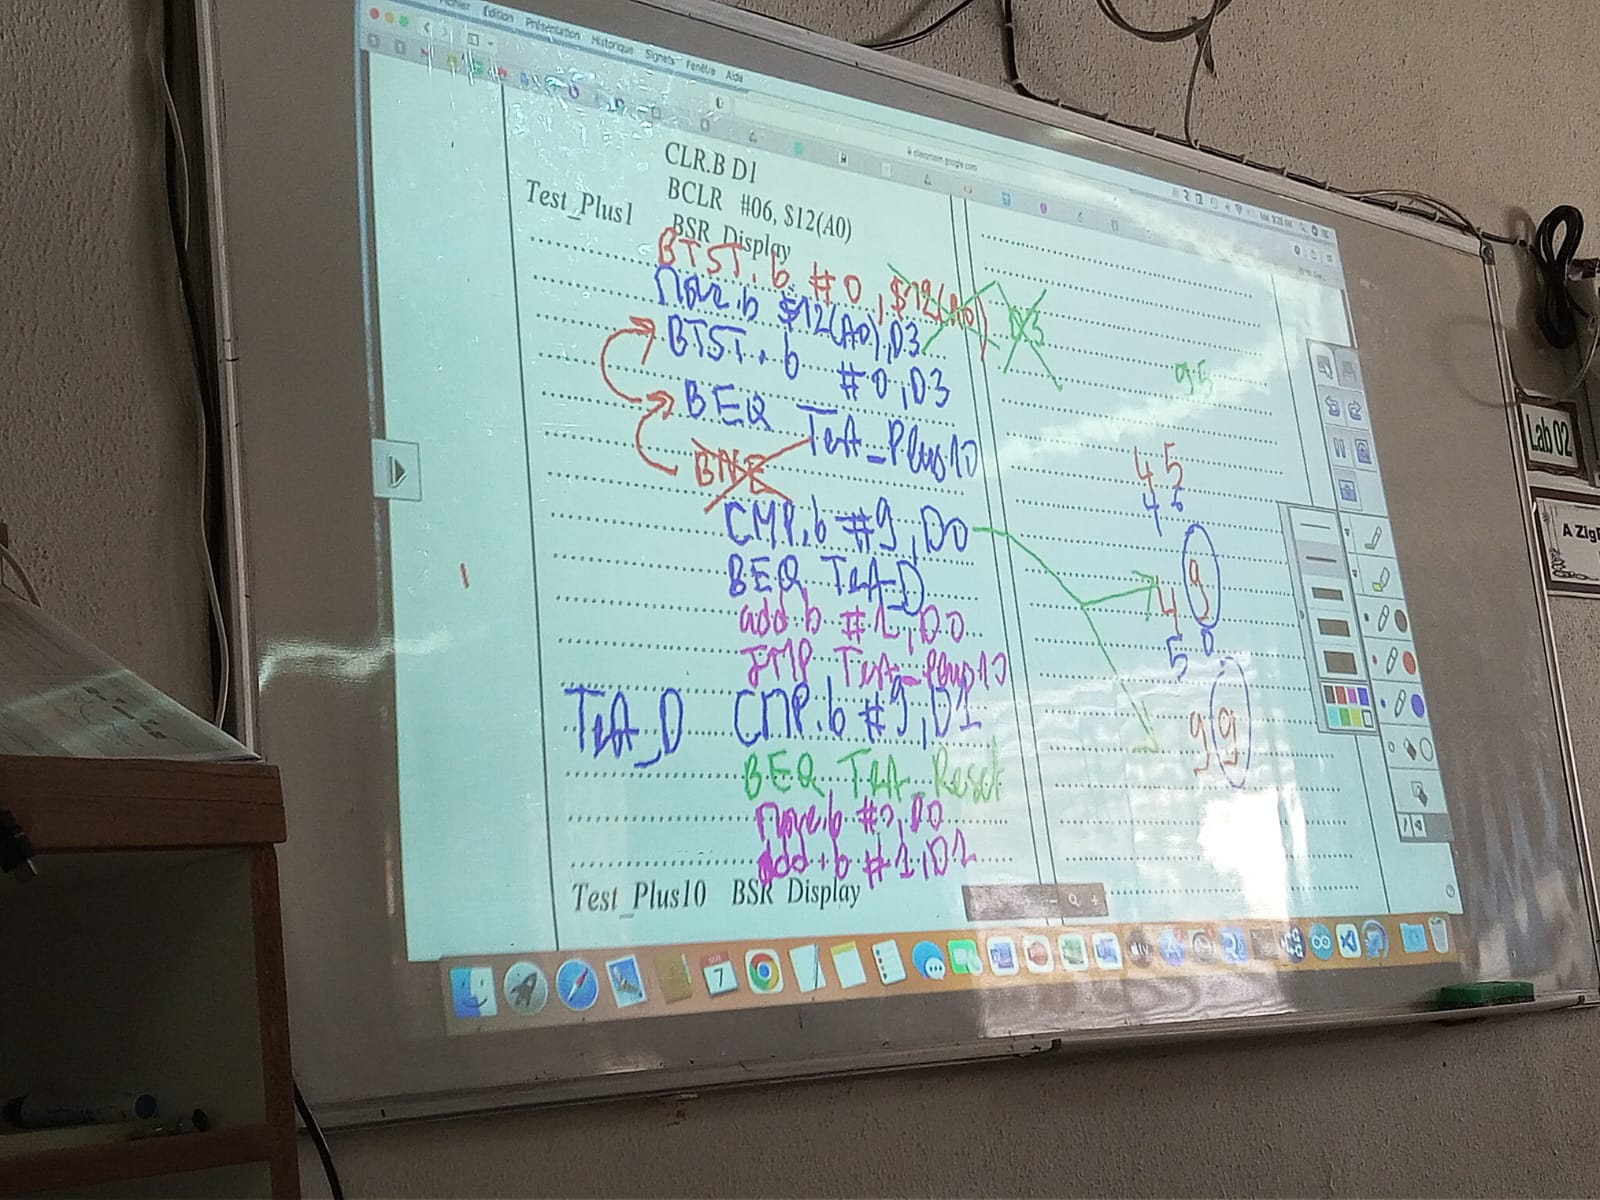 Fichier Édition Présentation Historique Signets Fenêtre Aide
classroom.google.com
CLR.B D1
BCLR #06, $12(A0)
Test_Plus1 BSR Display
BTST.b #0, $12(A0) D3
Move.b $12(A0), D3
BTST.b #0, D3
BEQ Test_Plus10
BNE
CMP.b #9, D0
BEQ Test_D
add.b #1, D0
JMP Test_Plus10
Test_D CMP.b #9, D1
BEQ Test_Reset
Move.b #0, D0
add.b #1, D1
Test_Plus10 BSR Display
95
45
46
49
50
99
7
Lab 02
A Zig